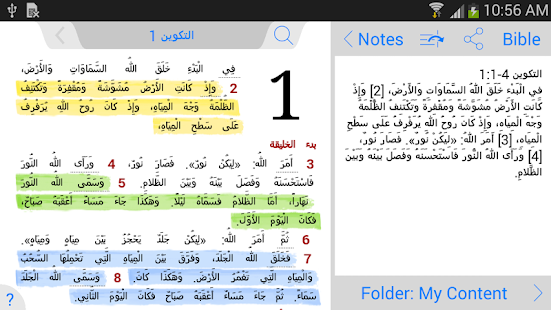 10:56 AM
التكوين 1
فِي الْبَدْءِ خَلَقَ اللهُ السَّمَاوَاتِ وَالأَرْضَ،
2 وَإِذْ كَانَتِ الأَرْضُ مُشَوَّشَةً وَمُقْفِرَةً وَتَكْتَنِفُ
الظُّلْمَةُ وَجْهَ الْمِيَاهِ، وَإِذْ كَانَ رُوحُ اللهِ يُرَفْرِفُ
عَلَى سَطْحِ الْمِيَاهِ،
1
بدء الخليقة
3 أَمَرَ اللهُ: «لِيَكُنْ نُورٌ». فَصَارَ نُورٌ، 4 وَرَأَى اللهُ النُّورَ
فَاسْتَحْسَنَهُ وَفَصَلَ بَيْنَهُ وَبَيْنَ الظَّلامِ. 5 وَسَمَّى اللهُ النُّورَ
نَهَاراً، أَمَّا الظَّلامُ فَسَمَّاهُ لَيْلاً. وَهَكَذَا جَاءَ مَسَاءٌ أَعْقَبَهُ صَبَاحٌ،
فَكَانَ الْيَوْمَ الأَوَّلَ.
6 ثُمَّ أَمَرَ اللهُ: «لِيَكُنْ جَلَدٌ يَحْجُزُ بَيْنَ مِيَاهٍ وَمِيَاهٍ».
7 فَخَلَقَ اللهُ الْجَلَدَ، وَفَرَّقَ بَيْنَ الْمِيَاهِ الَّتِي تَحْمِلُهَا السُّحُبُ
وَالْمِيَاهِ الَّتِي تَغْمُرُ الأَرْضَ. وَهَكَذَا كَانَ. 8 وَسَمَّى اللهُ الْجَلَدَ
سَمَاءً. ثُمَّ جَاءَ مَسَاءٌ أَعْقَبَهُ صَبَاحٌ فَكَانَ الْيَوْمَ الثَّانِي.
?
Notes
Bible
التكوين 1:1-4
فِي الْبَدْءِ خَلَقَ اللهُ السَّمَاوَاتِ وَالأَرْضَ، [2] وَإِذْ
كَانَتِ الأَرْضُ مُشَوَّشَةً وَمُقْفِرَةً وَتَكْتَنِفُ الظُّلْمَةُ
وَجْهَ الْمِيَاهِ، وَإِذْ كَانَ رُوحُ اللهِ يُرَفْرِفُ عَلَى سَطْحِ
الْمِيَاهِ، [3] أَمَرَ اللهُ: «لِيَكُنْ نُورٌ». فَصَارَ نُورٌ،
[4] وَرَأَى اللهُ النُّورَ فَاسْتَحْسَنَهُ وَفَصَلَ بَيْنَهُ وَبَيْنَ
الظَّلامِ.
Folder: My Content